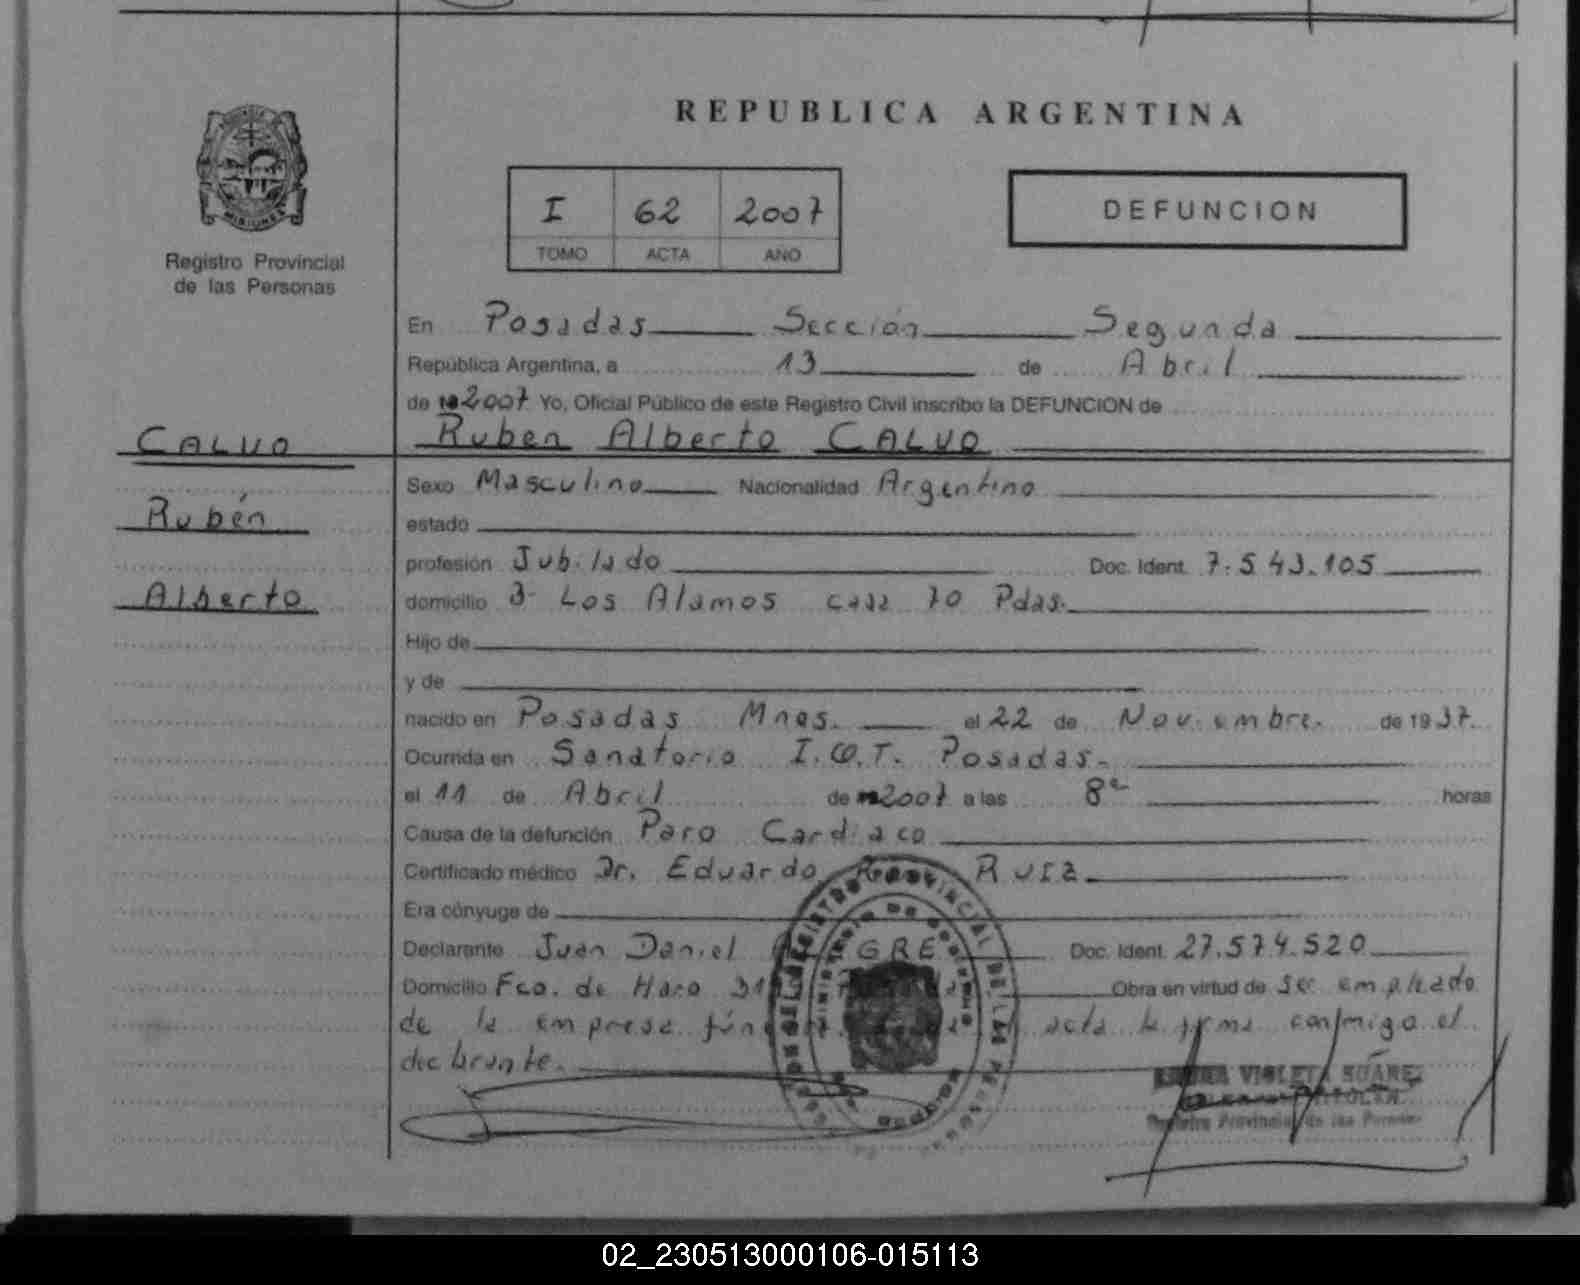 REPUBLICA ARGENTINA
MISIONES
Registro Provincial
de las Personas
I 62 2007
TOMO ACTA AÑO
DEFUNCION
En Posadas Sección Segunda
República Argentina, a 13 de Abril
de 2007 Yo, Oficial Público de este Registro Civil inscribo la DEFUNCION de
CALVO
Ruben Alberto CALVO
Rubén
Alberto
Sexo Masculino Nacionalidad Argentino
estado
profesión Jubilado Doc. Ident. 7.543.105
domicilio Los Alamos casa 70 Pdas.
Hijo de
y de
nacido en Posadas Mnes. el 22 de Noviembre de 1937.
Ocurrida en Sanatorio I.O.T. Posadas.
el 11 de Abril de 2007 a las 8 horas
Causa de la defunción Paro Cardiaco
Certificado médico Dr. Eduardo Ruiz
Era cónyuge de
Declarante Juan Daniel GRE Doc. Ident. 27.574.520
Domicilio Fco. de Haro Obra en virtud de ser empleado
de la empresa acta la firma conmigo el
declarante.
VIOLETA SUÁREZ
Registro Provincial de las Personas
02_230513000106-015113